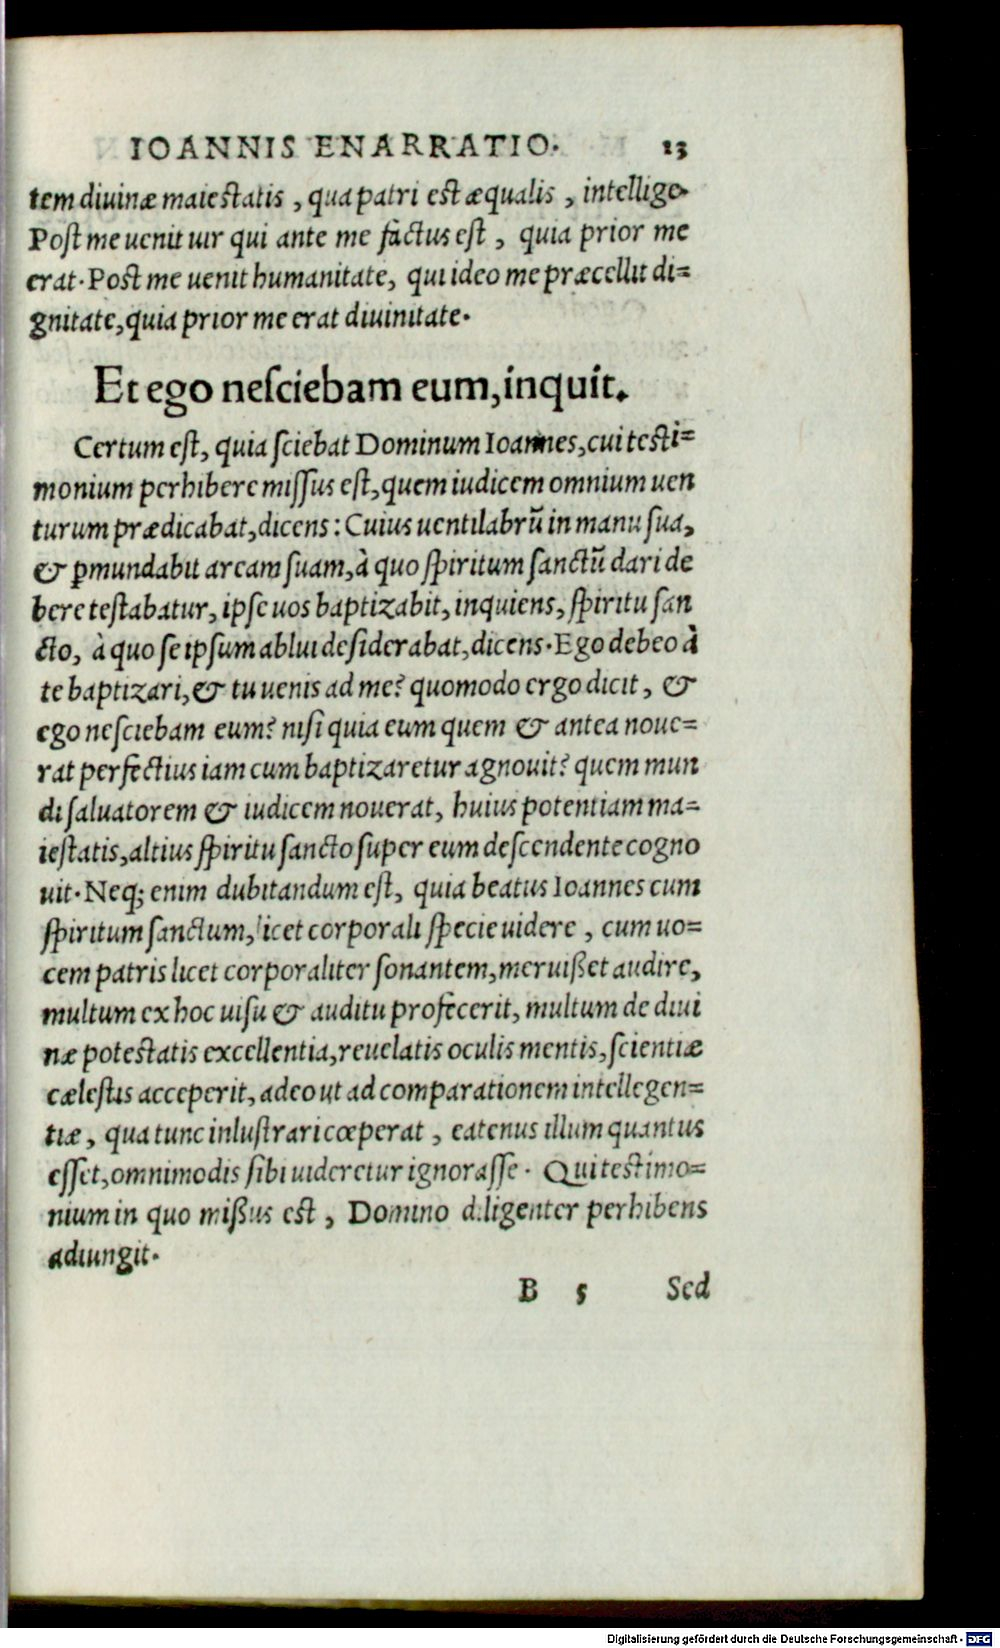 IOANNIS ENARRATIO. 13
tem diuinæ maiestatis, qua patri est æqualis, intellige.
Post me uenit uir qui ante me factus est, quia prior me
erat. Post me uenit humanitate, qui ideo me præcellit di=
gnitate, quia prior me erat diuinitate.
Et ego nesciebam eum, inquit.
Certum est, quia sciebat Dominum Ioannes, cui testi=
monium perhibere missus est, quem iudicem omnium uen
turum prædicabat, dicens: Cuius uentilabrũ in manu sua,
& ꝑmundabit aream suam, à quo spiritum sanctũ dari de
bere testabatur, ipse uos baptizabit, inquiens, spiritu san
cto, à quo se ipsum ablui desiderabat, dicens. Ego debeo à
te baptizari, & tu uenis ad me? quomodo ergo dicit, &
ego nesciebam eum? nisi quia eum quem & antea noue=
rat perfectius iam cum baptizaretur agnouit? quem mun
di saluatorem & iudicem nouerat, huius potentiam ma=
iestatis, altius spiritu sancto super eum descendente cogno
uit. Neq; enim dubitandum est, quia beatus Ioannes cum
spiritum sanctum, licet corporali specie uidere, cum uo=
cem patris licet corporaliter sonantem, meruißet audire,
multum ex hoc uisu & auditu profecerit, multum de diui
næ potestatis excellentia, reuelatis oculis mentis, scientiæ
cælestis acceperit, adeo ut ad comparationem intellegen=
tiæ, qua tunc inlustrari cœperat, eatenus illum quantus
esset, omnimodis sibi uideretur ignorasse. Qui testimo=
nium in quo mißus est, Domino diligenter perhibens
adiungit.
B 5 Sed
Digitalisierung gefördert durch die Deutsche Forschungsgemeinschaft - DFG